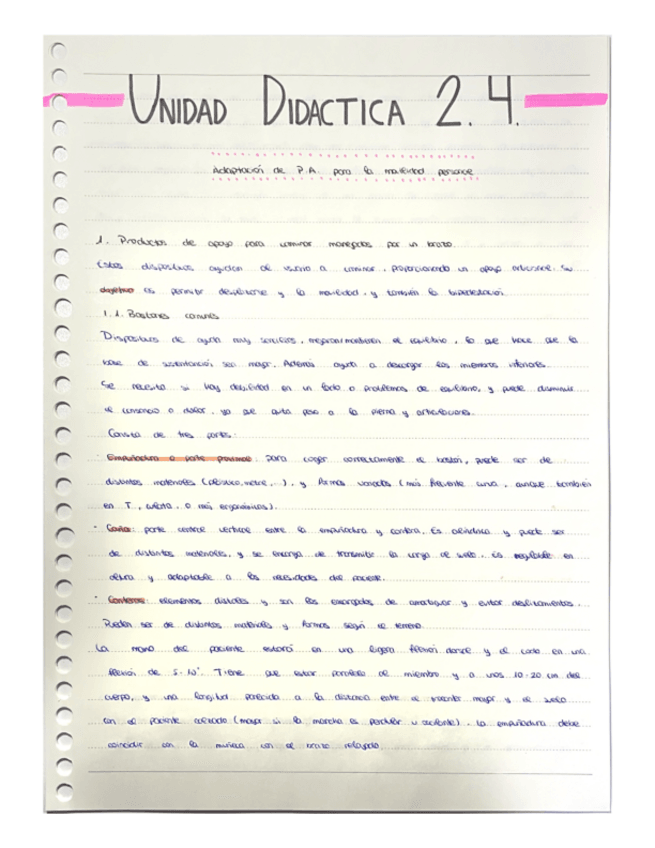 UNIDAD DIDACTICA 2.4.
Adaptación de P.A. para la movilidad personal
1. Productos de apoyo para caminar manejados por un brazo.
Estos dispositivos ayudan al usuario a caminar, proporcionando un apoyo adicional. Su
objetivo es permitir desplazarse y la movilidad, y también la bipedestación.
1.1. Bastones comunes
Dispositivos de ayuda muy sencillos, mejoran/mantienen el equilibrio, lo que hace que la
base de sustentación sea mayor. Además ayuda a descargar los miembros inferiores.
Se necesita si hay debilidad en un lado o problemas de equilibrio, y puede disminuir
el cansancio o dolor, ya que quita peso a la pierna y articulaciones.
Consta de tres partes:
· Empuñadura o parte proximal: para coger correctamente el bastón, puede ser de
distintos materiales (plástico, metal, ...), y formas variadas (más frecuente curva, aunque también
en T, o más ergonómicas).
· Caña: parte central vertical entre la empuñadura y contera. Es cilíndrica y puede ser
de distintos materiales, y se encarga de transmitir la carga al suelo. Es regulable en
altura y adaptable a las necesidades del paciente.
· Conteras: elementos distales y son los encargados de amortiguar y evitar deslizamientos.
Pueden ser de distintos materiales y formas según el terreno.
La mano del paciente estará en una ligera flexión dorsal y el codo en una
flexión de Tiene que estar paralelo al miembro y a unos 10-20 cm del
cuerpo, y una longitud parecida a la distancia entre el trocánter mayor y el suelo
con el paciente calzado (mayor si la marcha es pendular u oscilante). La empuñadura debe
coincidir con la muñeca con el brazo relajado.